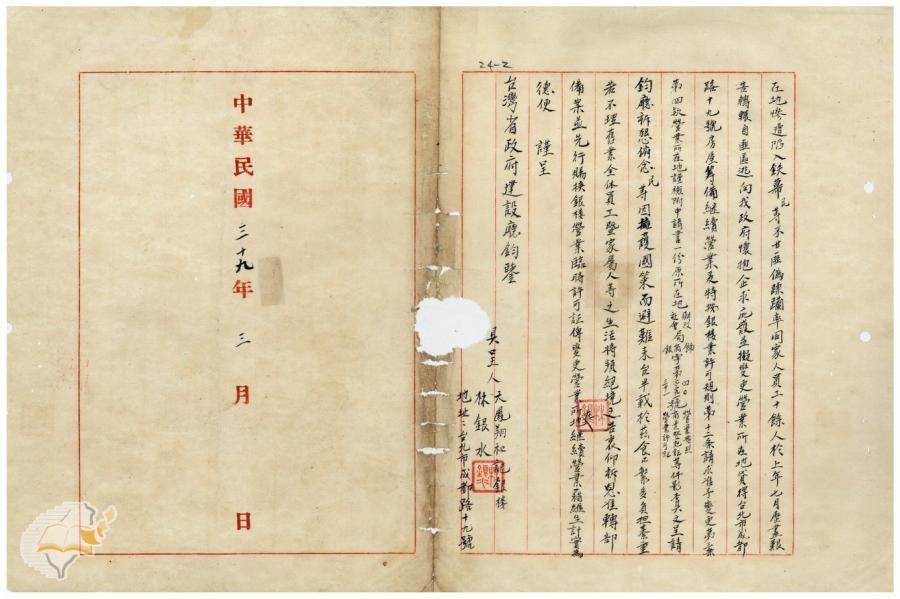 24-2
在地慘遭陷入鉄幕民等不甘匪偽蹂躪率同家人員工十餘人於上年七月歷盡艱
苦轉輾自匪區逃向我政府懷抱企求庇護並擬變更營業所在地賃得台北市成都
路十九號房屋籌備繼續營業爰特按銀樓業許可規則第十二条請求准予變更第六条
第四欵營業所在地謹檢附申請書一份原所在地
鈞廳祈懇俯念民等因擁護國策而避難來台半載於茲食口繁多負担綦重
若不理舊業全体員工暨家屬人等之生活將頻絕境之苦衷仰祈恩准轉部
備案並先行賜換銀樓營業臨時許可証俾變更營業所址繼續營業藉維生計實為
德便 謹呈
台灣省政府建設廳鈞鑒
具呈人 天鳳翔和記銀樓
林銀水
地址：台北市成都路十九號
中華民國三十九年三月 日